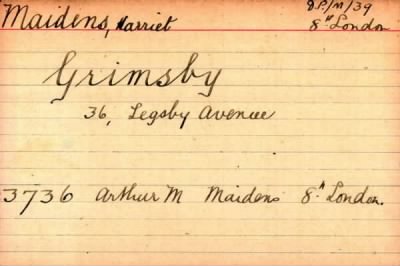 Maidens, Harriet
8.P/M/39
8th London
Grimsby
36, Legsby Avenue
3736 Arthur M Maidens 8th London.